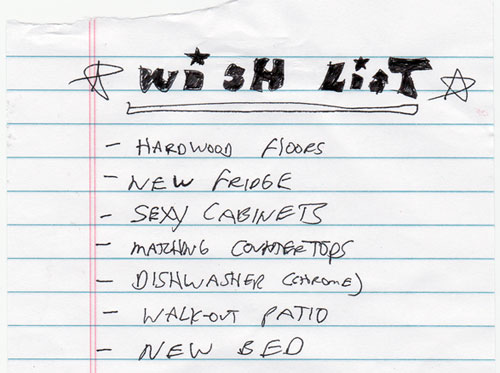 WiSH LiST
- HARDWOOD FLOORS
- NEW FRIDGE
- SEXY CABINETS
- MATCHING COUNTERTOPS
- DISHWASHER (CHROME)
- WALK-OUT PATIO
- NEW BED